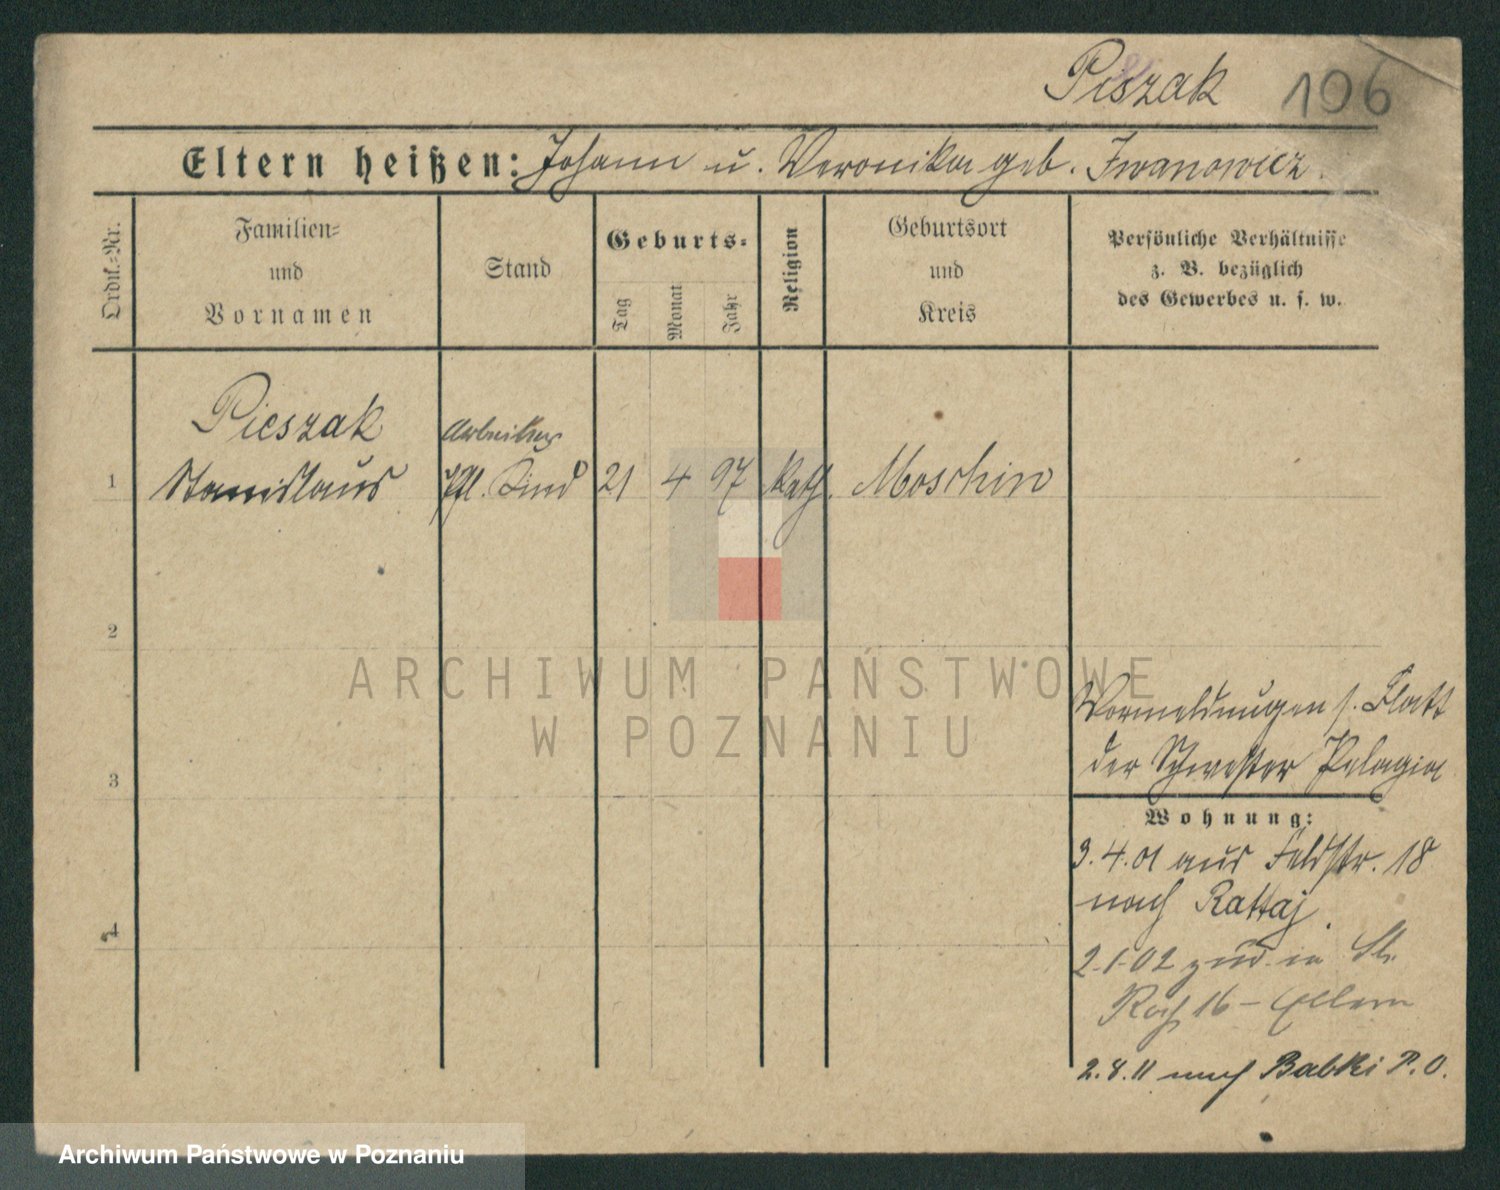 Piszak 106
Eltern heißen: Johann u. Weronika geb. Iwanowicz.
Ordn.-Nr.
Familien-
und
Vornamen
Stand
Geburts-
Tag
Monat
Jahr
Religion
Geburtsort
und
Kreis
Persönliche Verhältnisse
z. B. bezüglich
des Gewerbes u. s. w.
Pieszak
Arbeiter
1 Stanislaus Pfl. Kind 21 4 97 kath. Moschin
2
ARCHIWUM PAŃSTWOWE
W POZNANIU
Vormeldungen s. Blatt
der Schwester Pelagia
3
Wohnung:
3.4.01 aus Feldstr. 18
nach Rattaj.
4
2.1.02 zur. in St.
Roch 16 – Eltern
2.8.11 nach Babki P.O.
Archiwum Państwowe w Poznaniu